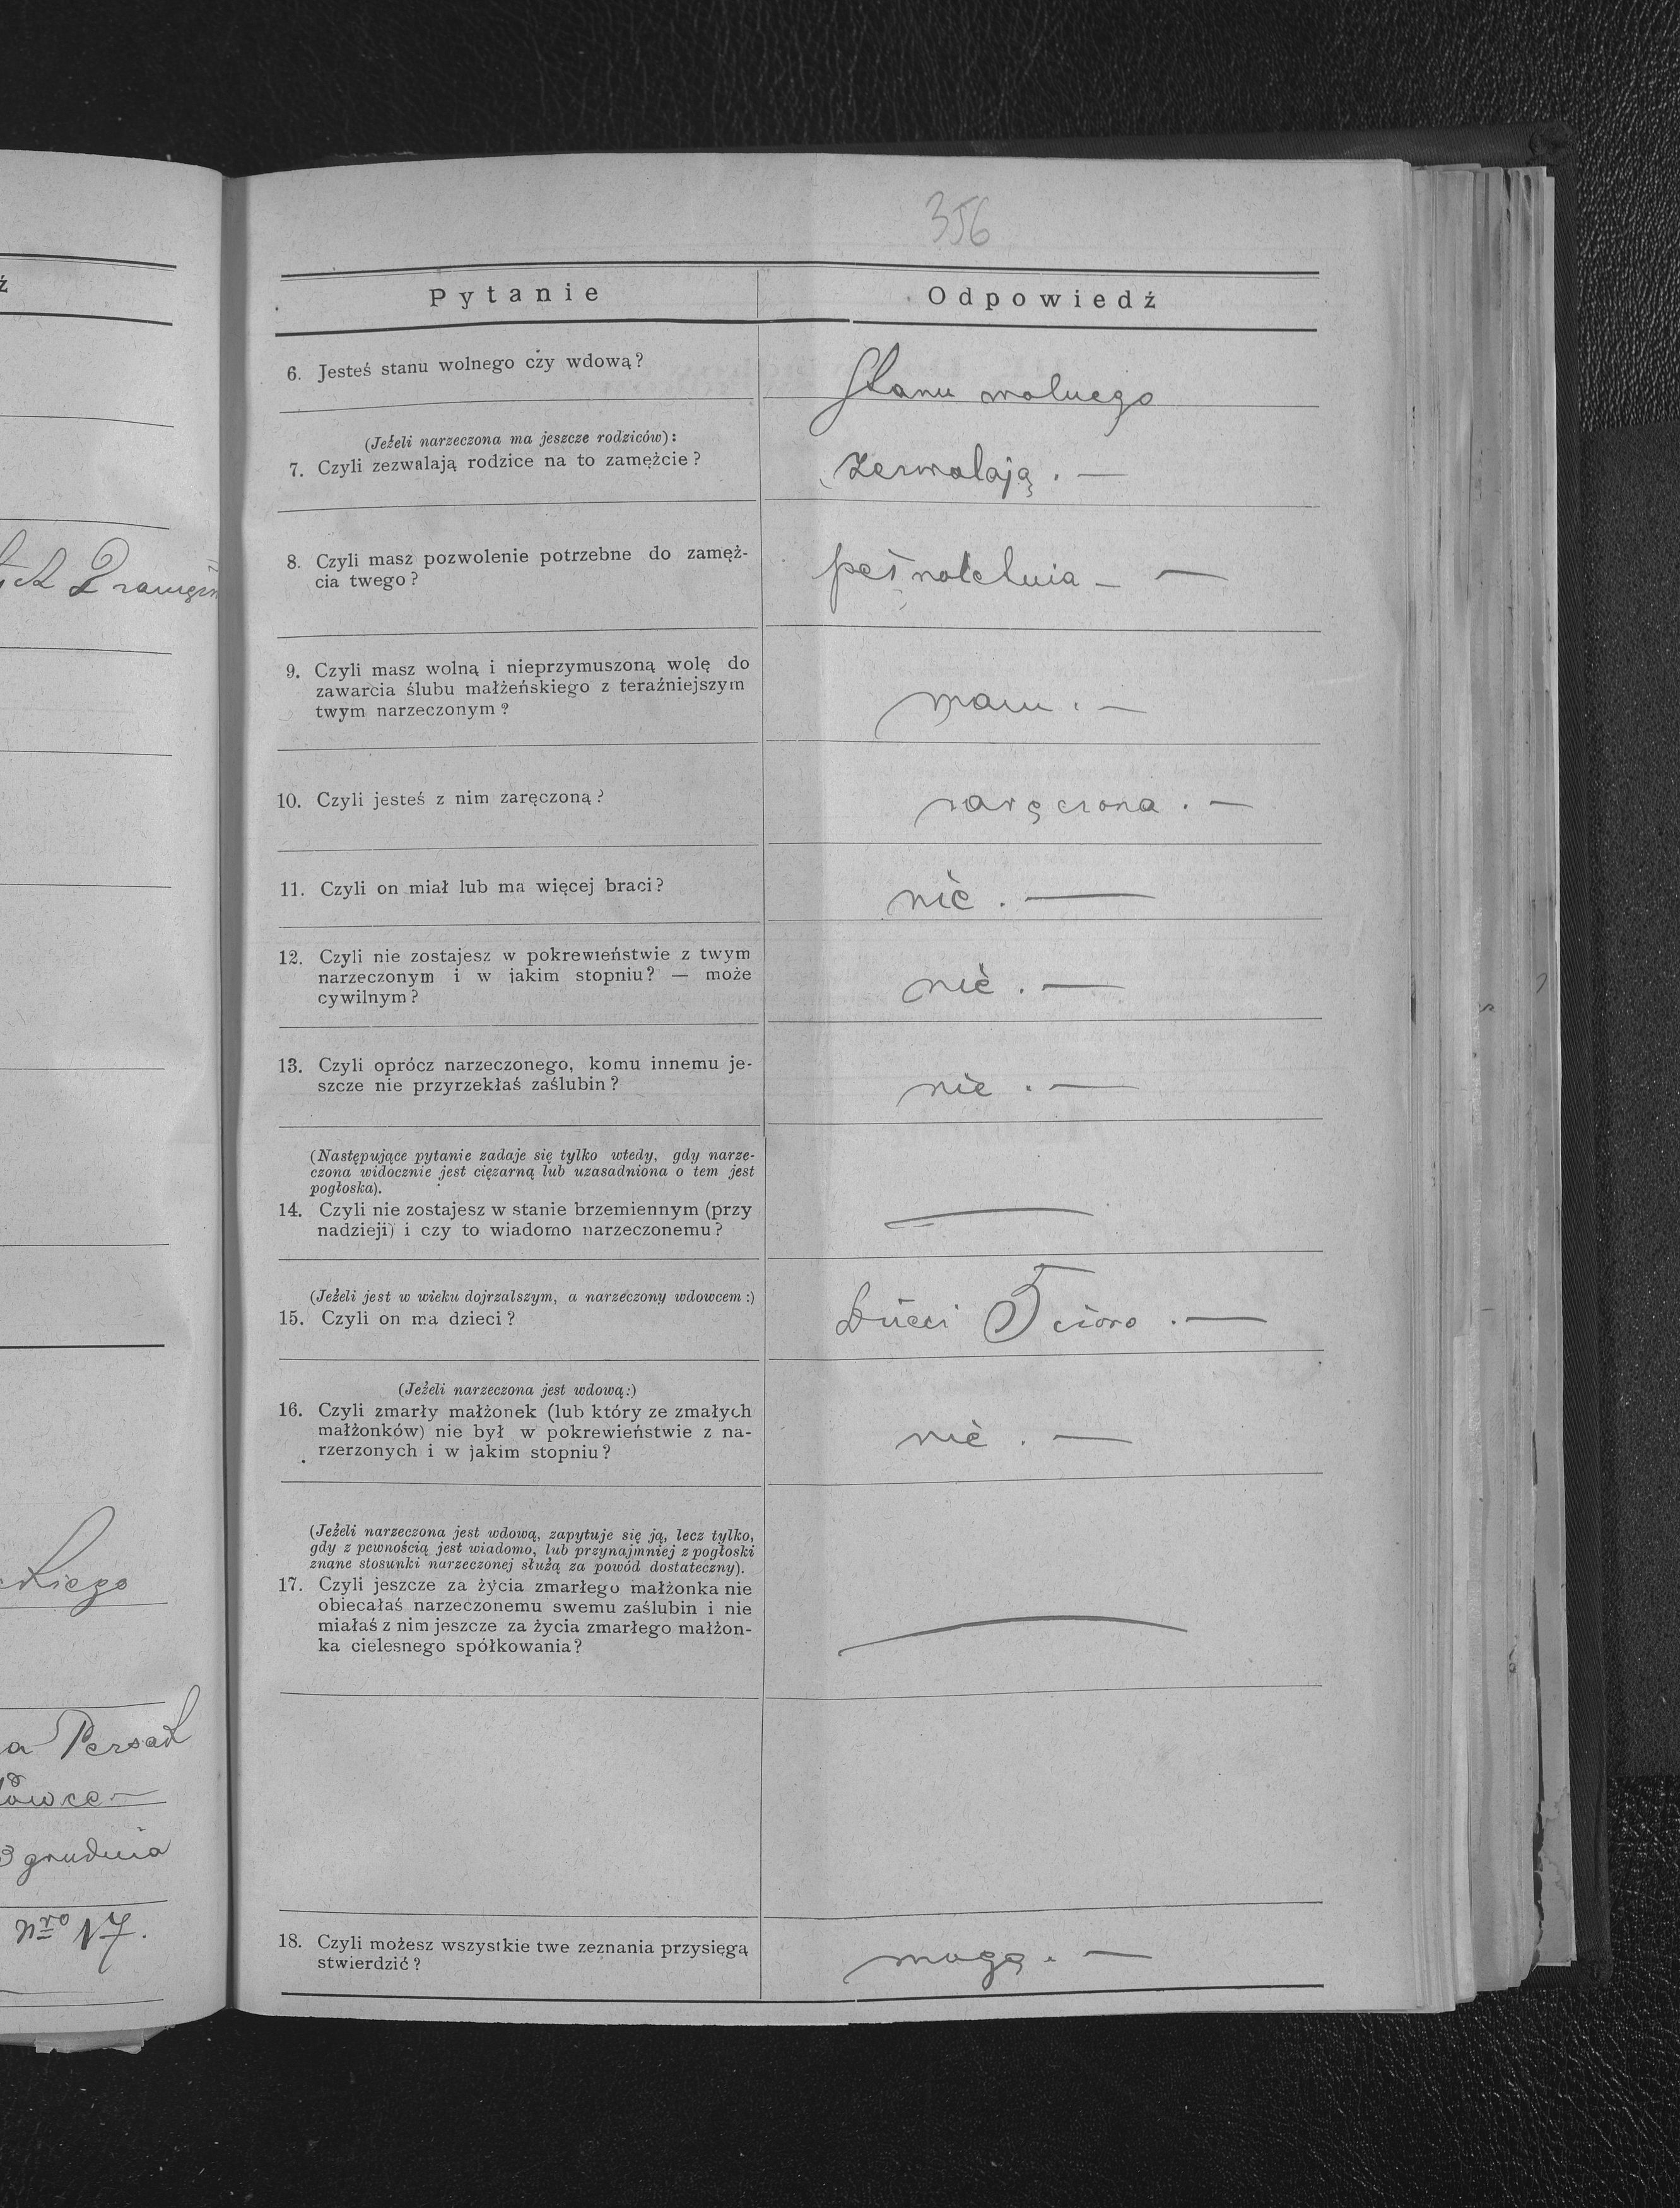 356
Pytanie
Odpowiedź
6. Jesteś stanu wolnego czy wdową?
Stanu wolnego
(Jeżeli narzeczona ma jeszcze rodziców):
7. Czyli zezwalają rodzice na to zamężcie?
zezwalają . —
8. Czyli masz pozwolenie potrzebne do zamęż-
cia twego?
— —
9. Czyli masz wolną i nieprzymuszoną wolę do
zawarcia ślubu małżeńskiego z teraźniejszym
twym narzeczonym?
mam . —
10. Czyli jesteś z nim zaręczoną?
zaręczona . —
11. Czyli on miał lub ma więcej braci?
nie . —
12. Czyli nie zostajesz w pokrewieństwie z twym
narzeczonym i w jakim stopniu? — może
cywilnym?
nie . —
13. Czyli oprócz narzeczonego, komu innemu je-
szcze nie przyrzekłaś zaślubin?
nie . —
(Następujące pytanie zadaje się tylko wtedy, gdy narze-
czona widocznie jest ciężarną lub uzasadniona o tem jest
pogłoska).
14. Czyli nie zostajesz w stanie brzemiennym (przy
nadzieji) i czy to wiadomo narzeczonemu?
—
(Jeżeli jest w wieku dojrzalszym, a narzeczony wdowcem:)
15. Czyli on ma dzieci?
Dzieci 5 cioro . —
(Jeżeli narzeczona jest wdową:)
16. Czyli zmarły małżonek (lub który ze zmałych
małżonków) nie był w pokrewieństwie z na-
rzerzonych i w jakim stopniu?
nie . —
(Jeżeli narzeczona jest wdową, zapytuje się ją, lecz tylko,
gdy z pewnością jest wiadomo, lub przynajmniej z pogłoski
znane stosunki narzeczonej służą za powód dostateczny).
17. Czyli jeszcze za życia zmarłego małżonka nie
obiecałaś narzeczonemu swemu zaślubin i nie
miałaś z nim jeszcze za życia zmarłego małżon-
ka cielesnego spółkowania?
—
18. Czyli możesz wszystkie twe zeznania przysięgą
stwierdzić?
mogę . —
ź
a Persak
3 grudnia
Nro 17.